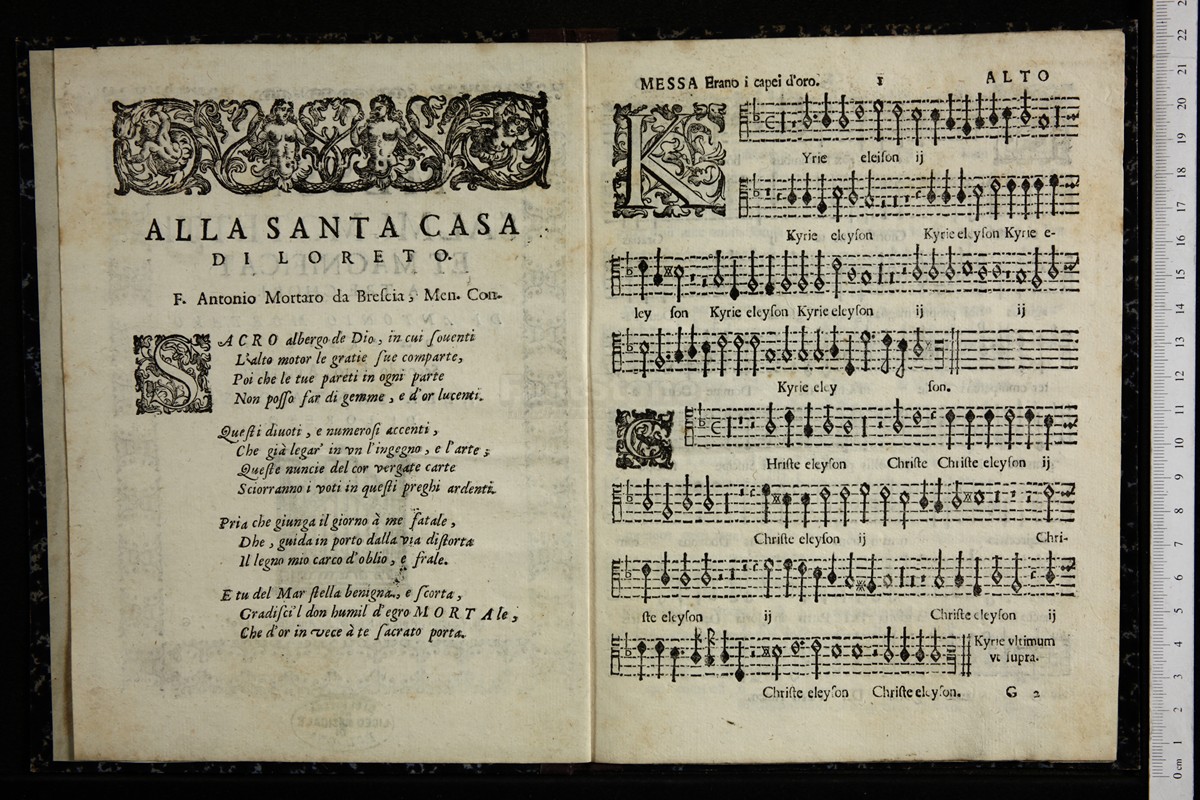 ALLA SANTA CASA
DI LORETO.
F. Antonio Mortaro da Breſcia, Men. Con-
SACRO albergo de Dio, in cui ſouenti
L'alto motor le gratie ſue comparte,
Poi che le tue pareti in ogni parte
Non poſſo far di gemme, e d'or lucenti.
Queſti diuoti, e numeroſi accenti,
Che già legar' in vn l'ingegno, e l'arte;
Queſte nuncie del cor vergate carte
Sciorranno i voti in queſti preghi ardenti.
Pria che giunga il giorno à me fatale,
Dhe, guida in porto dalla via diſtorta
Il legno mio carco d'oblio, e frale.
E tu del Mar ſtella benigna, e ſcorta,
Gradiſci'l don humil d'egro MORTAle,
Che d'or in vece à te ſacrato porta.
MESSA Erano i capei d'oro. 1 ALTO
KYrie eleiſon ij
Kyrie eleyſon Kyrie eleyſon Kyrie e-
ley ſon Kyrie eleyſon Kyrie eleyſon ij ij
Kyrie eley ſon.
CHriſte eleyſon Chriſte Chriſte eleyſon ij
Chriſte eleyſon ij Chri-
ſte eleyſon ij Chriſte eleyſon ij
Kyrie vltimum
vt ſupra.
Chriſte eleyſon Chriſte eleyſon. G 2